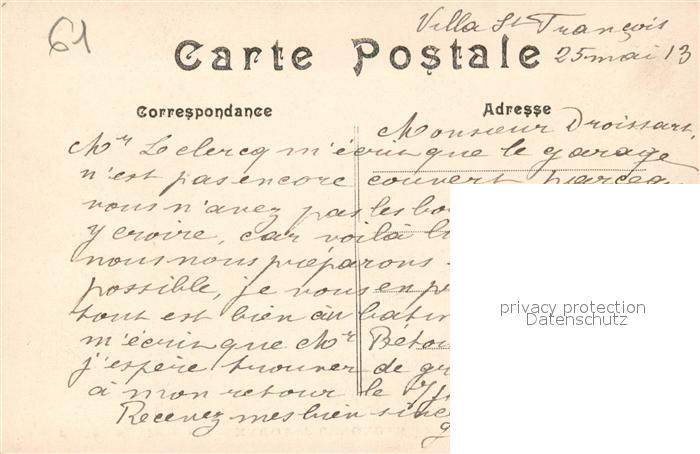 61
Villa St François
25 mai 13
Carte Postale
Correspondance
Adresse
Monsieur Droissart,
Mr Leclercq m'écrit que le garage
n'est pas encore couvert parce
vous n'avez pas les
y croire, car voilà
nous nous préparons
possible, je vous en
tout est bien au
m'écrit que Mr
j'espère trouver de
à mon retour le
Recevez mes bien
privacy protection
Datenschutz